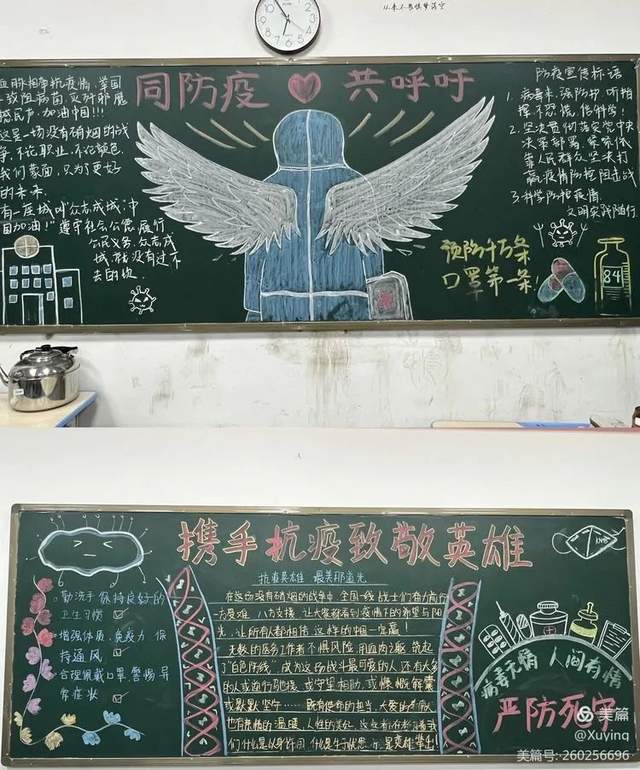 同防疫 共呼吁
血脉相牵抗疫情,举国
一致阻病菌,灭歼邪魔
感民声,加油中国!!!
这是一场没有硝烟的战
争,不论职业,不论颜色
我们蒙面,只为了更好
的未来.
有一座城叫众志成城,中
国加油!"遵守社会公德,履行
公民义务,众志成
城,就没有过不
去的坎.
防疫宣传标语
1. 病毒来,强防护,听指
挥,不恐慌,信科学!
2. 坚决贯彻落实党中央
决策部署,紧紧依
靠人民群众坚决打
赢疫情防控阻击战
3. 科学防控疫情,
文明实践随行
预防千万条
口罩第一条!
84
携手抗疫致敬英雄
抗疫英雄 最美那道光
在这场没有硝烟的战争中,全国一线战士们奋力前行
一方有难,八方支援,让大家都看到疫情下的希望与阳
光,让所有人都相信这样的中国一定赢!
无数的医务工作者不惧风险,用血肉之躯,筑起
了"白色防线",成为这场战斗最可爱的人,还有太多
的人或逆行驰援,或守望相助,或慷慨解囊
勤洗手 保持良好的
卫生习惯
增强体质、免疫力,保
持通风
合理佩戴口罩,警惕异
常症状
N95
病毒无情 人间有情
严防死守
美篇
@Xuying
美篇号: 260256696